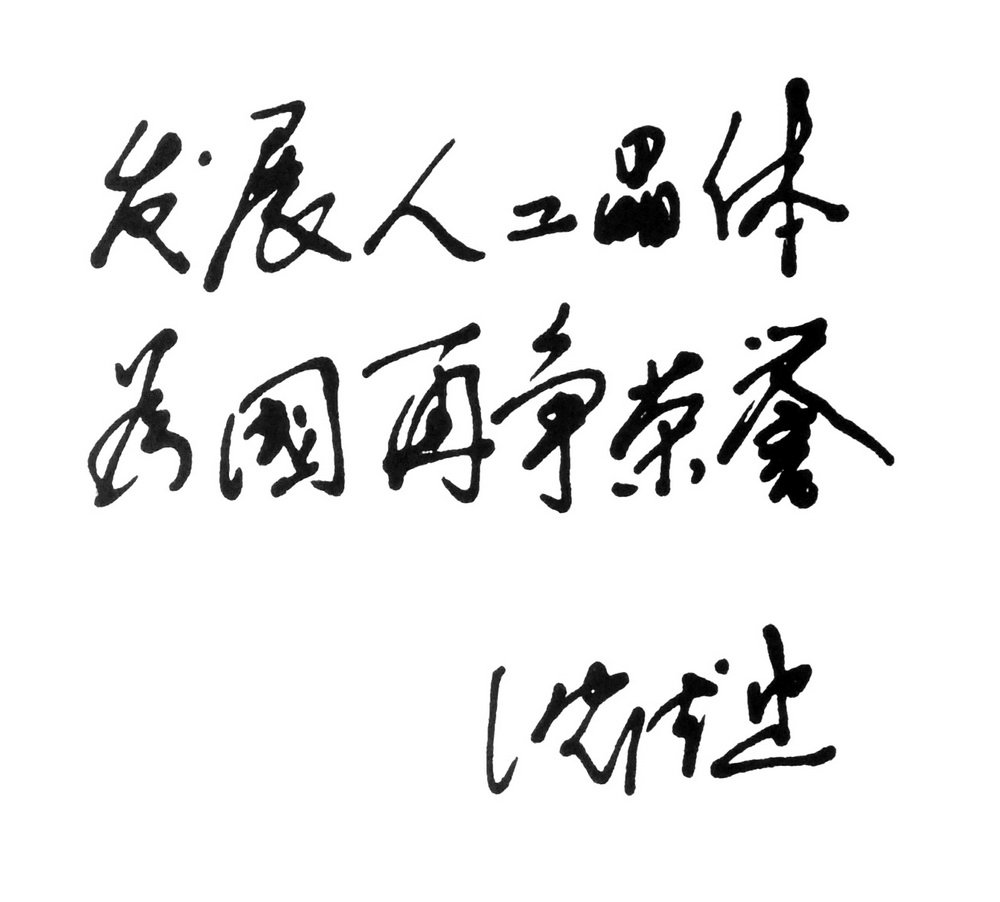 发展人工晶体
為國再争荣誉
沈德忠